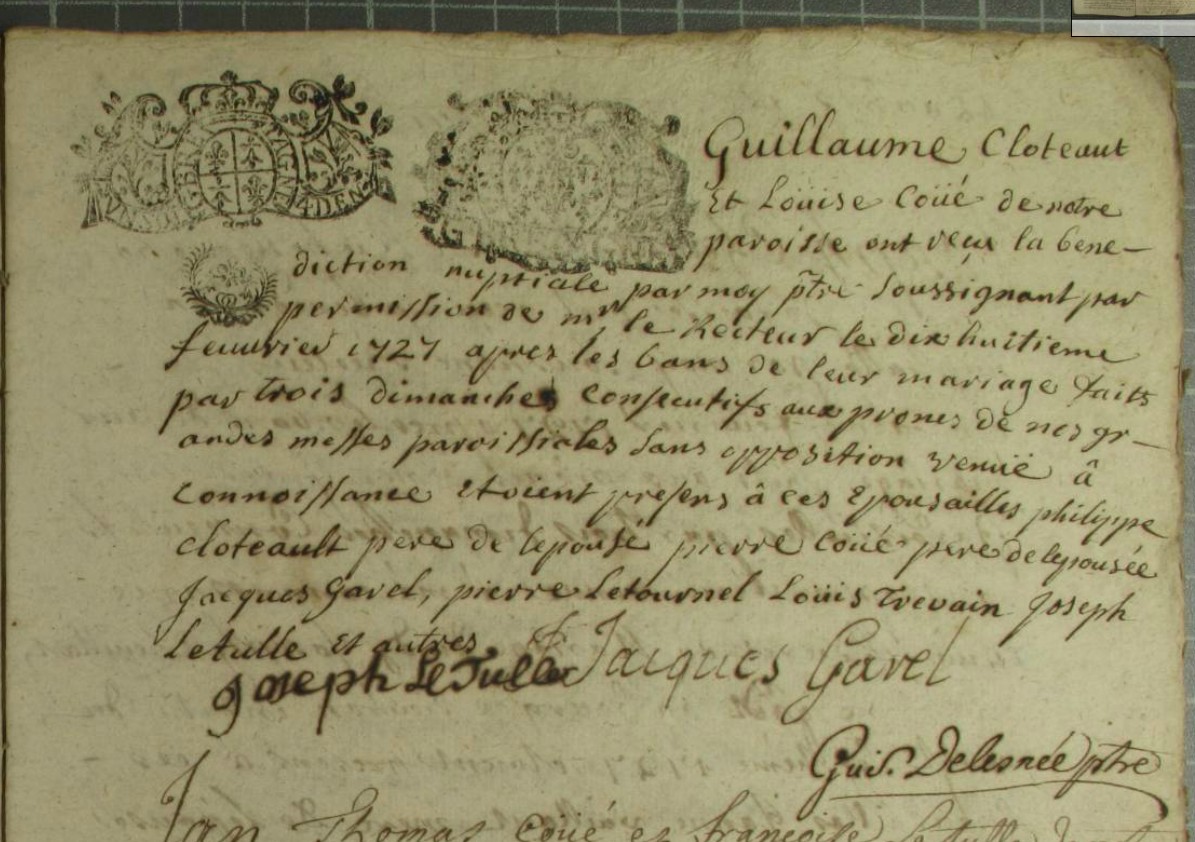 BRETAGNE
4 DEN
Guillaume Cloteaut
Et Loüise Coüé de notre
paroisse ont reçu la bene-
diction nuptiale par moy ptre Soussignant par
permission de mr le Recteur le dix huitieme
feuvrier 1727 apres les bans de leur mariage faits
par trois dimanches Consecutifs aux prones de nos gr-
andes messes paroissiales Sans opposition venuë â
Connoissance Etoient presens â ces Epousailles philippe
Cloteault pere de lepousé pierre Coüé pere de lepousée
Jacques Garel, pierre Letournel Loüis Trevain Joseph
Letulle Et autres
Joseph Le Tulle Jacques Garel
Guil. Delesnée ptre
Jan Thomas Coüé et françoise Letulle